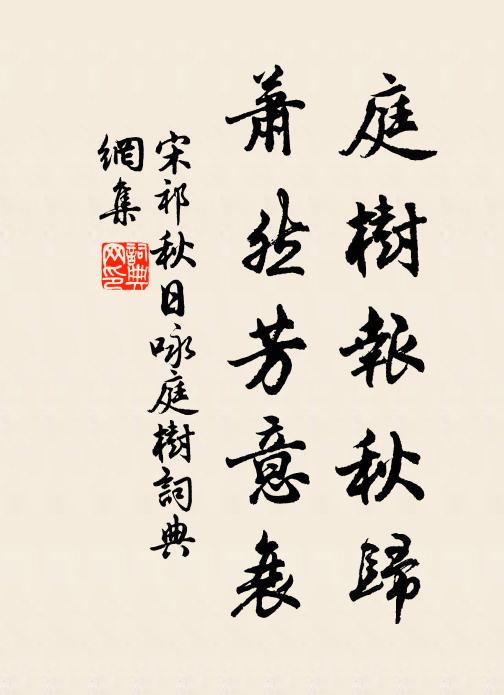 庭樹報秋歸
蕭然芳意衰
宋祁秋日咏庭樹詞典
網集
詞典
网印